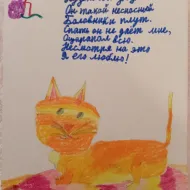 Он такой несносный
Баловник и плут.
Спать он не даёт мне,
Оцарапал всю.
Несмотря на это
Я его люблю!